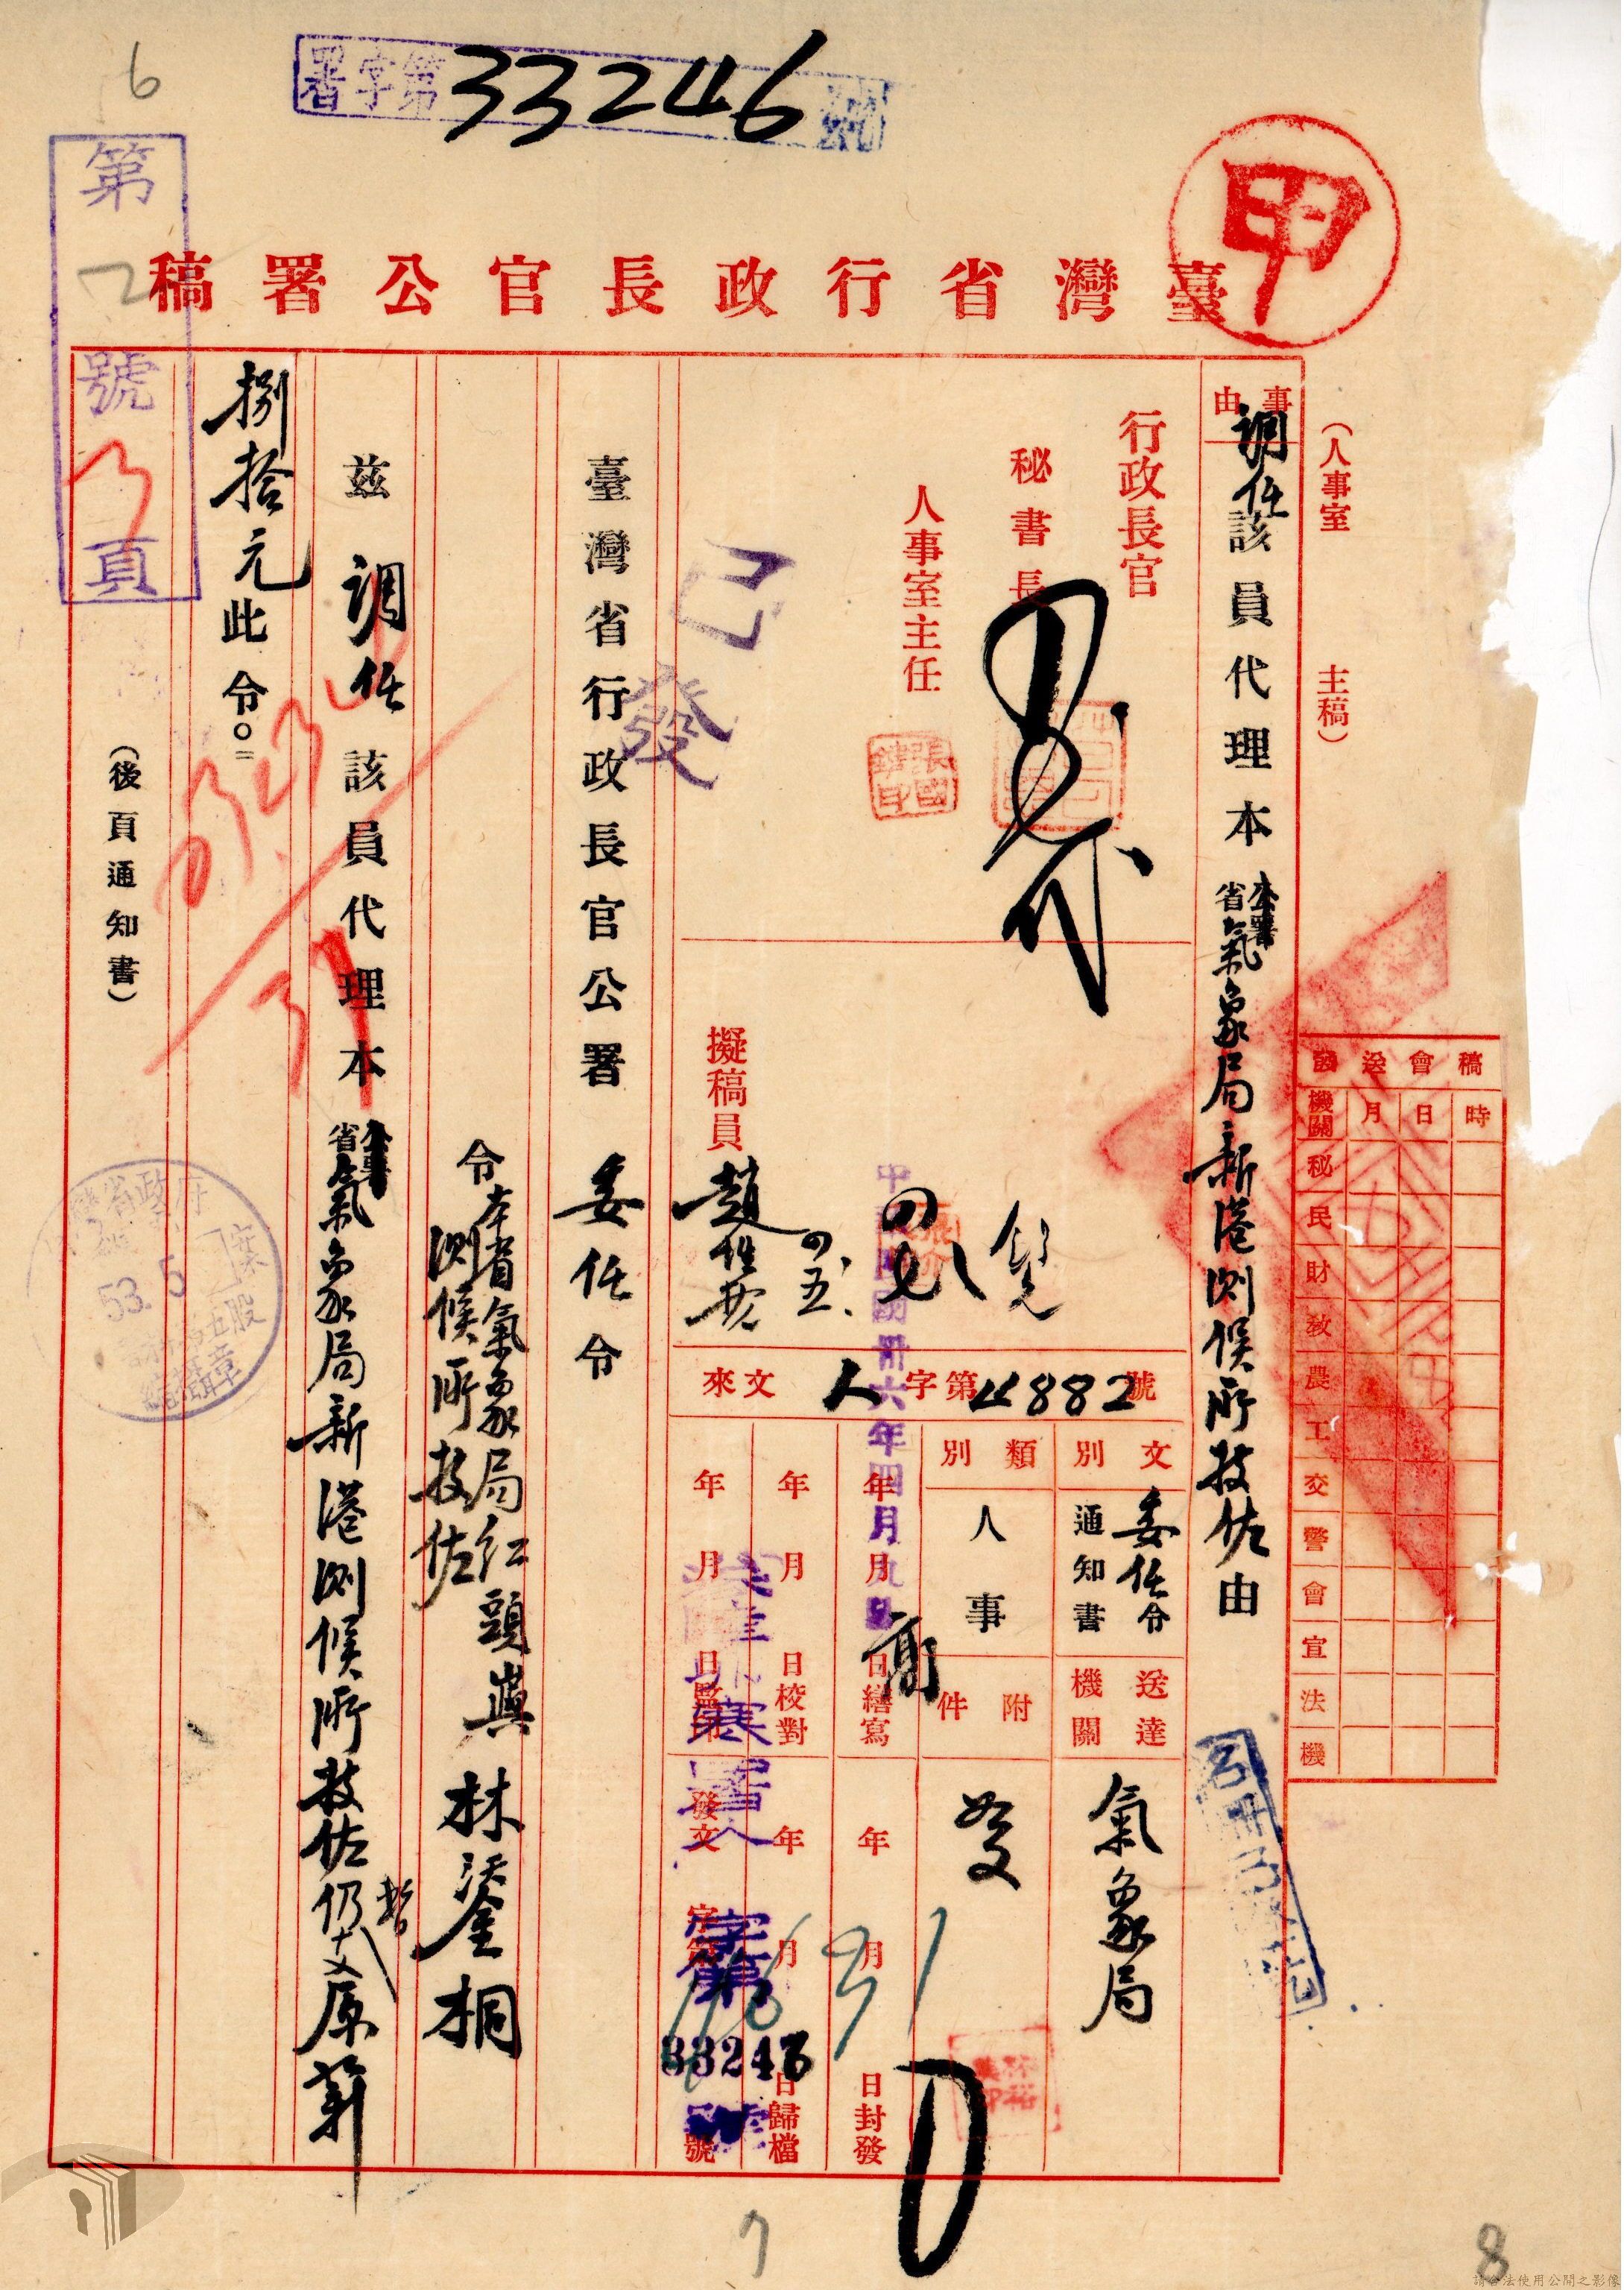 6
署字第33246號
甲
第
號
頁
臺灣省行政長官公署稿
(人事室 主稿)
事由
調任該員代理本省氣象局新港測候所技佐由
行政長官
秘書長
人事室主任
張國鍵印
已發
擬稿員
四五
來文 人字第4882號
文別 委任令 通知書
送達機關 氣象局
類別 人事
附件
中華民國卅六年四月九日
年月日繕寫
年月日校對
年月日監印
年月日封發
年月日歸檔
發文 字第 號
署人字第
33246
會稿送
機關 月 日 時
秘
民
財
教
農
工
交
警
會
宣
法
機
臺灣省行政長官公署委任令
令本省氣象局紅頭嶼測候所技佐 林鋈桐
茲調任該員代理本省氣象局新港測候所技佐仍暫支原薪
捌拾元此令。
(後頁通知書)
臺灣省政府
53.5
7
8
請合法使用公開之影像